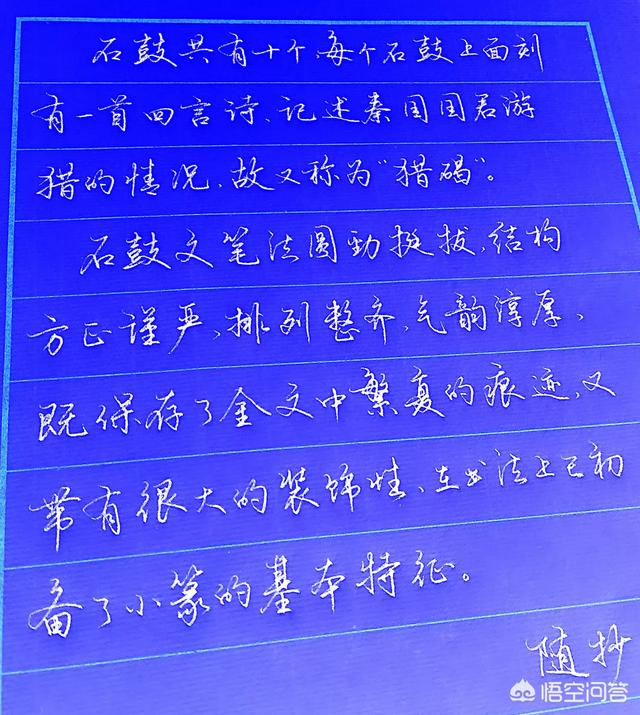 石鼓共有十个,每个石鼓上面刻
有一首四言诗、记述秦国国君游
猎的情况,故又称为“猎碣”。
石鼓文笔法圆劲挺拔,结构
方正谨严,排列整齐,气韵淳厚、
既保存了金文中繁复的痕迹,又
带有很大的装饰性、在书法上已初
备了小篆的基本特征。
随抄
悟空问答